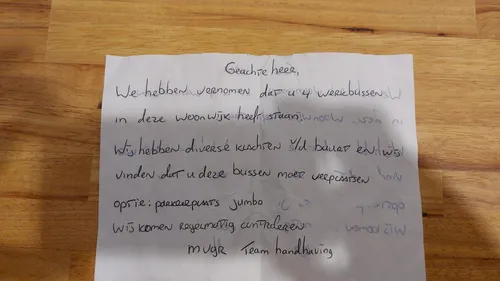 Geachte heer,
We hebben vernomen dat u 4 werkbussen
in deze woonwijk heeft staan.
Wij hebben diverse klachten v/d buurt en wij
vinden dat u deze bussen moet verplaatsen
optie: parkeerplaats jumbo
Wij komen regelmatig controleren
mvgr Team handhaving